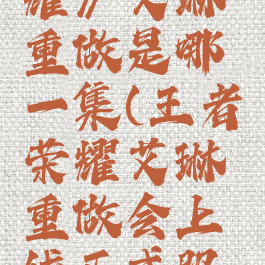 耀》艾琳
重做是哪
一集(王者
荣耀艾琳
重做会上